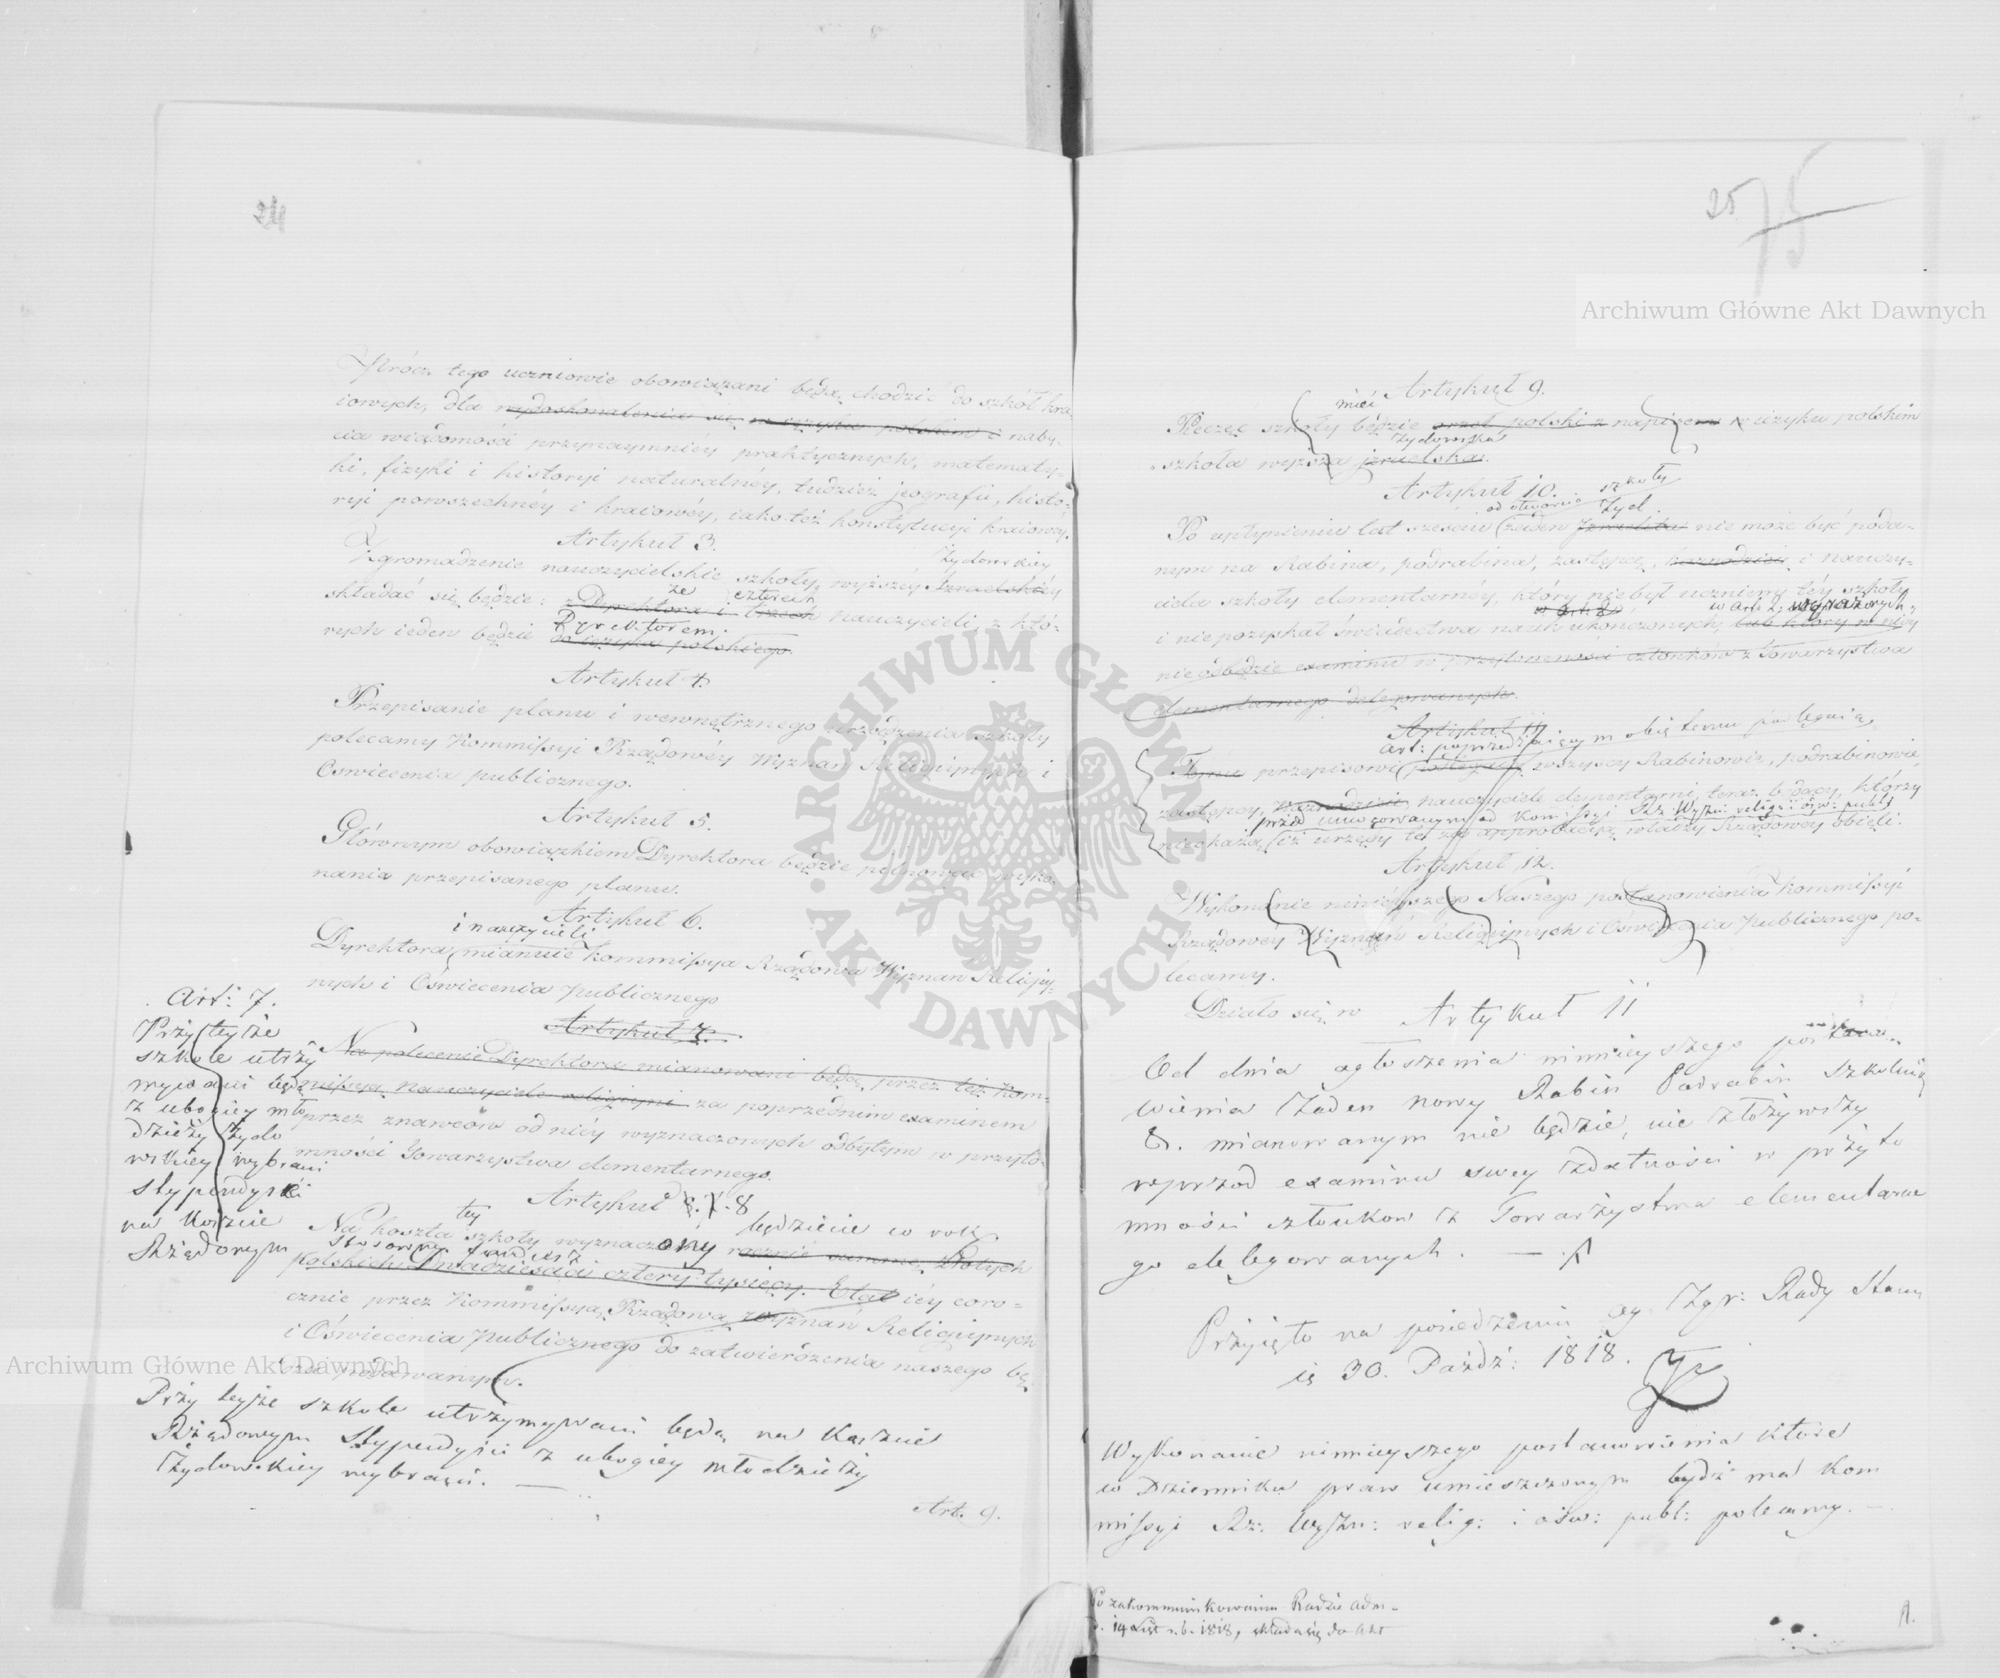 24
Oprócz tego uczniowie obowiązani będą chodzić do szkół kra-
iowych, dla wydoskonalenia się w ięzyku polskim i naby-
cia wiadomości przynaymniéy praktycznych, matematy-
ki, fizyki i historyi naturalnéy, tudzież jeografii, histo-
ryi powszechnéy i kraiowéy, iako też konstytucyi kraiowéy.
Artykuł 3.
Żydowskiey
Zgromadzenie nauczycielskie szkoły wyższéy Izraelskiéy
ze czterech
składać się będzie: z Dyrektora i trzech nauczycieli, z któ-
Dyrektorem.
rych ieden będzie do ięzyka polskiego.
Artykuł 4.
Przepisanie planu i wewnętrznego urządzenia szkoły
polecamy Kommissyi Rządowéy Wyznań Religiynych i
Oświecenia publicznego.
Artykuł 5.
Głównym obowiązkiem Dyrektora będzie pilnować wyko-
nania przepisanego planu.
Artykuł 6.
i nauczycieli
Dyrektora mianuie Kommissya Rządowa Wyznań Religiy-
nych i Oświecenia Publicznego
Art: 7.
Przy teyże
szkole utrzy
mywani będą
z ubogiey mło
dzieży żydo
wskiey wybrani
stypendyści
na koszcie
Rządowym
Artykuł 7.
Na polecenie Dyrektora mianowani będą przez też Kom-
missyą nauczyciele religiyni za poprzednim examinem
przez znawców od niéy wyznaczonych odbytym w przyto-
mności Towarzystwa elementarnego.
Artykuł 8
tey będziecie w rok
Na koszta szkoły wyznaczony rocznie summę Złotych
stosowny fundusz
polskich Dwadzieścia cztery tysięcy. Etat iéy coro-
cznie przez Kommissyą Rządową Wyznań Religiynych
i Oświecenia Publicznego do zatwierdzenia naszego bę-
dzie podawanym.
Przy teyże szkole utrzymywani będą na koszcie
Rządowym Stypendyści z ubogiey młodzieży
Żydowskiey wybrani.
Art. 9.
25
75
Artykuł 9.
mieć
Pieczęć szkoły będzie orzeł polski z napisem w ięzyku polskim
żydowska
szkoła wyższa izraelska.
Artykuł 10.
od otworzenia szkoły
Żyd
Po upłynieniu lat sześciu żaden Izraelita nie może być poda-
nym na Rabina, podrabina, zastępcę, kaznodzieię i nauczy-
ciela szkoły elementarnéy, który niebył uczniem téy szkoły
w Art 2 wyrażonych
i niepozyskał świadectwa nauk ukończonych, lub który w niéy
nie odbędzie examinu w przytomności członków z Towarzystwa
elementarnego delegowanych.
Artykuł 11
art: poprzedzaiącym obiętemu podlegaią
Temu przepisowi podlegaią wszyscy Rabinowie, podrabinowie
zastępcy, kaznodzieie, nauczyciele elementarni, teraz będący, którzy
przed umocowanym od Kommissyi Rz. Wyzn: relig: i ośw: publ
nieokażą, iż urzędy te za approbacyą władzy Rządowey obięli.
Artykuł 12.
Wykonanie ninieyszego Naszego postanowienia Kommissyi
Rządowey Wyznań Religiynych i Oświecenia Publicznego po-
lecamy.
Działo się w
Artykuł 11
Od dnia ogłoszenia ninieyszego postano-
wienia żaden nowy Rabin Podrabin Szkolnik
&. mianowanym nie będzie, nie złożywszy
wprzód examinu swey zdatności w przyto
mności członków z Towarzystwa elementarne
go delegowanych.
Przyięto na posiedzeniu og. Zgr: Rady Stanu
30. Paźdź: 1818.
Wykonanie ninieyszego postanowienia które
w Dzienniku praw umieszczonym bydź ma Kom
missyi Rz: Wyzn: relig: i ośw: publ: polecamy.
Po zakommunikowaniu Radzie Adm-
d. 19 List r. b. 1818, składa się do akt
Archiwum Główne Akt Dawnych
Archiwum Główne Akt Dawnych
ARCHIWUM GŁÓWNE AKT DAWNYCH